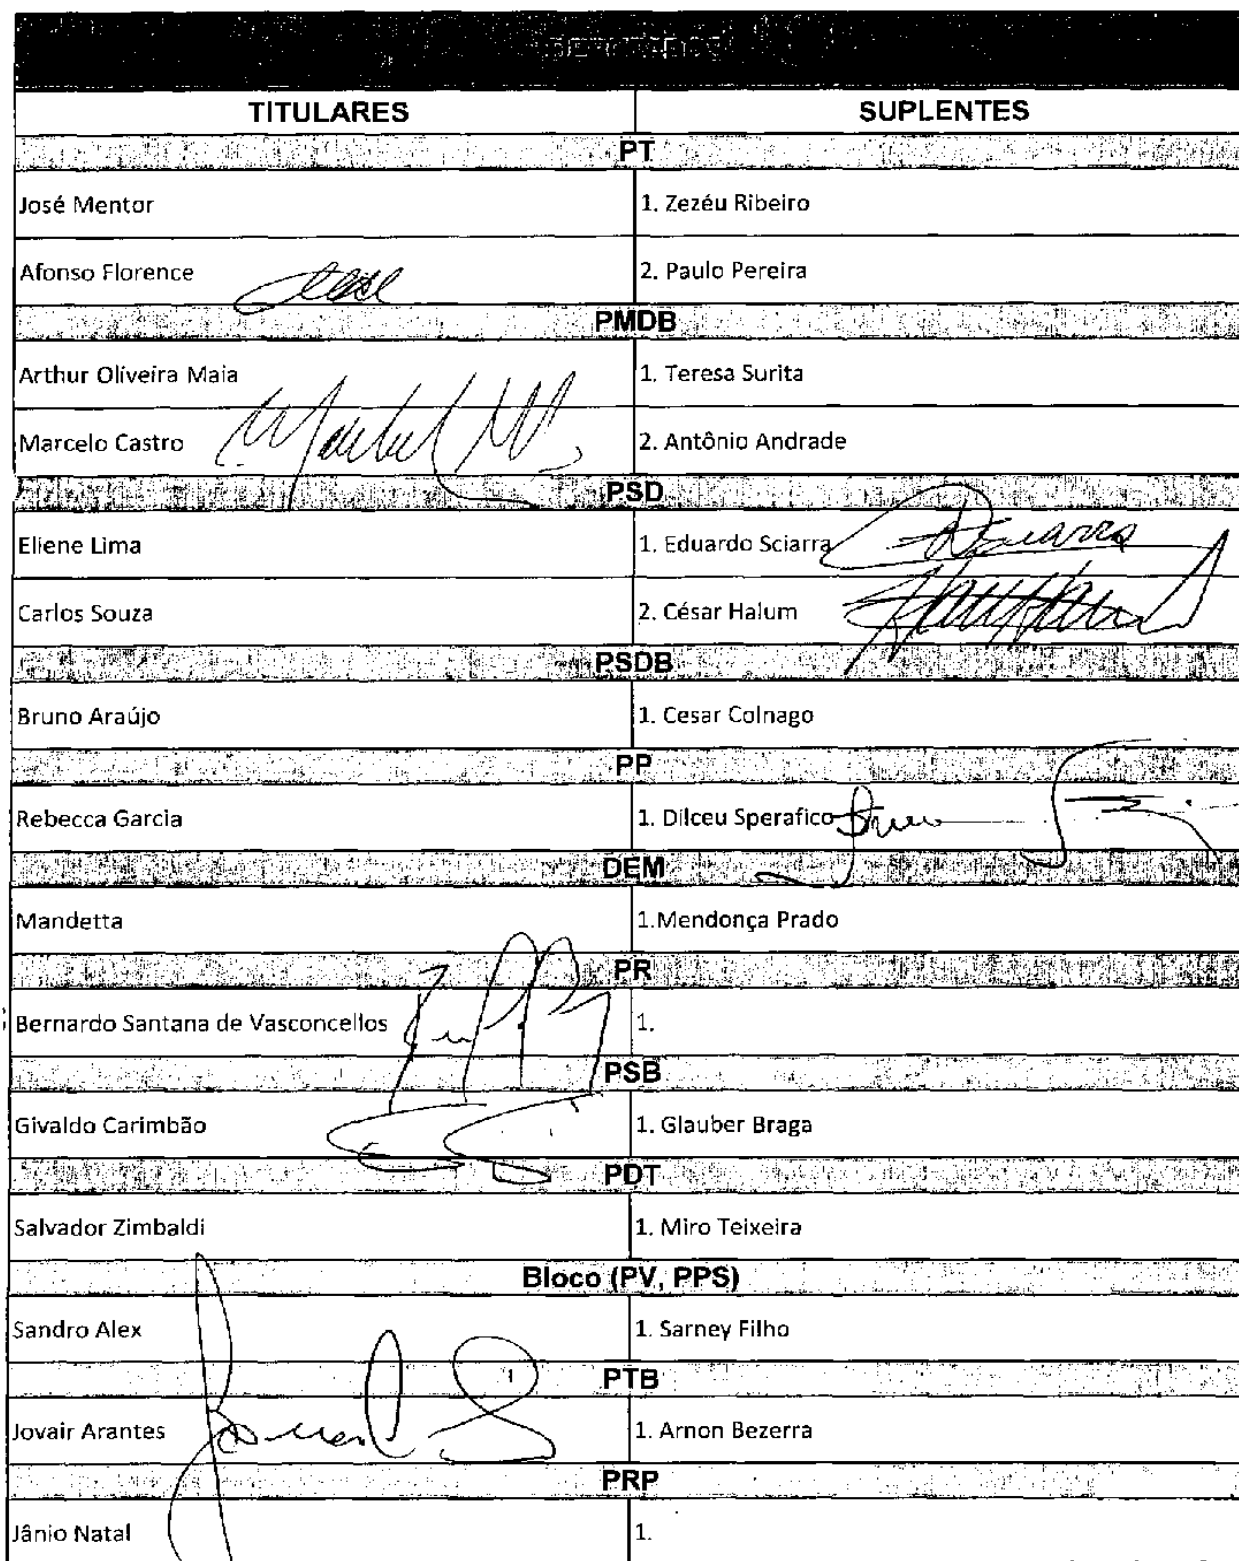 DEPUTADOS
TITULARES SUPLENTES
PT
José Mentor 1. Zezéu Ribeiro
Afonso Florence 2. Paulo Pereira
PMDB
Arthur Oliveira Maia 1. Teresa Surita
Marcelo Castro 2. Antônio Andrade
PSD
Eliene Lima 1. Eduardo Sciarra
Carlos Souza 2. César Halum
PSDB
Bruno Araújo 1. Cesar Colnago
PP
Rebecca Garcia 1. Dilceu Sperafico
DEM
Mandetta 1.Mendonça Prado
PR
Bernardo Santana de Vasconcellos 1.
PSB
Givaldo Carimbão 1. Glauber Braga
PDT
Salvador Zimbaldi 1. Miro Teixeira
Bloco (PV, PPS)
Sandro Alex 1. Sarney Filho
PTB
Jovair Arantes 1. Arnon Bezerra
PRP
Jânio Natal 1.